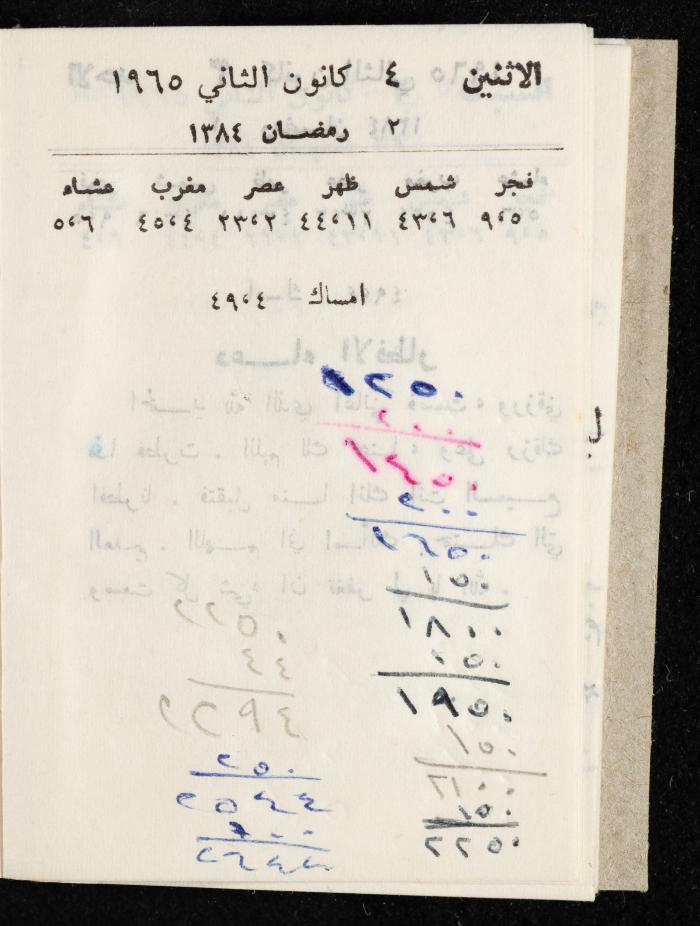 الاثنين ٤ كانون الثاني ١٩٦٥
٢ رمضان ١٣٨٤
فجر شمس ظهر عصر مغرب عشاء
٥،٩ ٦،٤٣ ١١،٤٤ ٢،٢٣ ٤،٤٥ ٦،٥
امساك ٤،٤٩
١٢٥٠
١٤٥٠
٢٠٠
١٦٥٠
١٥٠
١٨٠٠
١٥٠
١٩٥٠
١٥٠
٢١٠٠
١٥٠
٢٢٥٠
٢٢٥٠
٤٤
٢٢٩٤
٢٥٠
٢٥٤٤